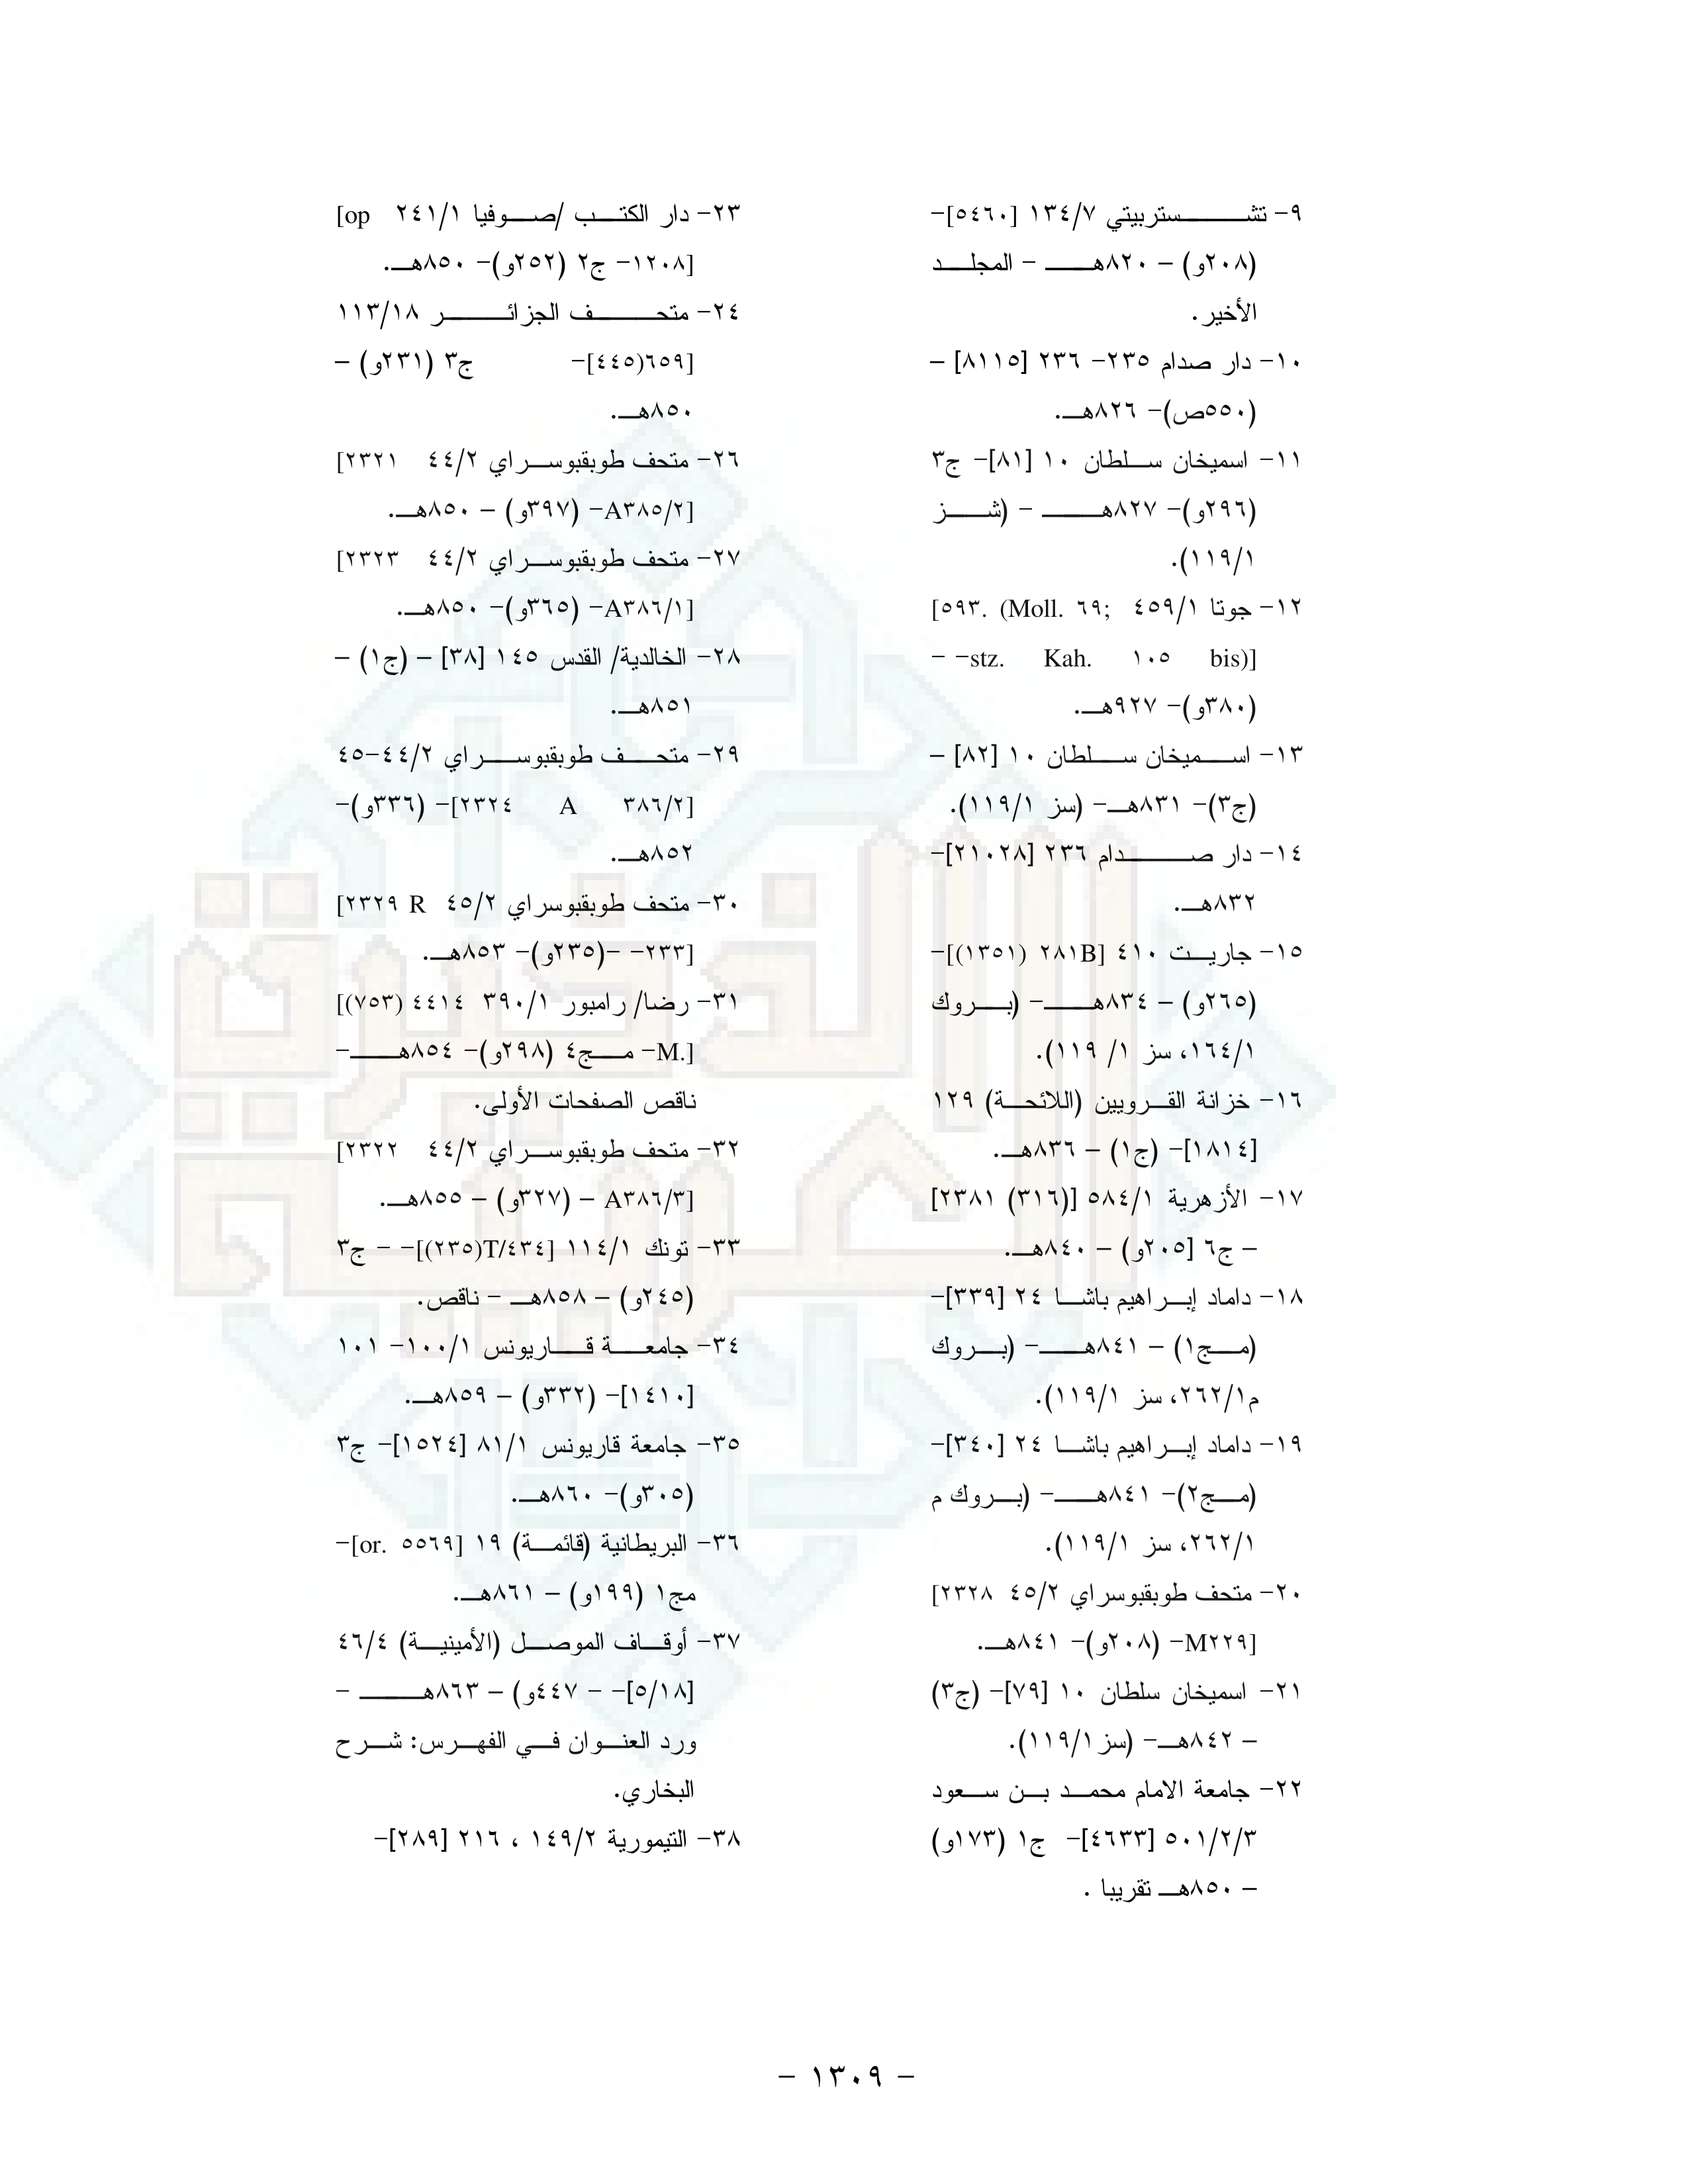 ٩- تشستربيتي ١٣٤/٧ [٥٤٦٠]-
(٢٠٨و) – ٨٢٠هـ – المجلد
الأخير.
١٠- دار صدام ٢٣٥- ٢٣٦ [٨١١٥] –
(٥٥٠ص)- ٨٢٦هـ.
١١- اسميخان سلطان ١٠ [٨١]- ج٣
(٢٩٦و)- ٨٢٧هـ – (شز
١١٩/١).
١٢- جوتا ٤٥٩/١ [٥٩٣. (Moll. ٦٩;
stz. Kah. ١٠٥ bis)]- –
(٣٨٠و)- ٩٢٧هـ.
١٣- اسميخان سلطان ١٠ [٨٢] –
(ج٣)- ٨٣١هـ- (سز ١١٩/١).
١٤- دار صدام ٢٣٦ [٢١٠٢٨]-
٨٣٢هـ.
١٥- جاريت ٤١٠ [٢٨١B (١٣٥١)]-
(٢٦٥و) – ٨٣٤هـ- (بروك
١٦٤/١، سز ١/ ١١٩).
١٦- خزانة القرويين (اللائحة) ١٢٩
[١٨١٤]- (ج١) – ٨٣٦هـ.
١٧- الأزهرية ٥٨٤/١ [(٣١٦) ٢٣٨١]
– ج٦ [٢٠٥و) – ٨٤٠هـ.
١٨- داماد إبراهيم باشا ٢٤ [٣٣٩]-
(مج١) – ٨٤١هـ- (بروك
م٢٦٢/١، سز ١١٩/١).
١٩- داماد إبراهيم باشا ٢٤ [٣٤٠]-
(مج٢)- ٨٤١هـ- (بروك م
٢٦٢/١، سز ١١٩/١).
٢٠- متحف طوبقبوسراي ٤٥/٢ [٢٣٢٨
M٢٢٩]- (٢٠٨و)- ٨٤١هـ.
٢١- اسميخان سلطان ١٠ [٧٩]- (ج٣)
– ٨٤٢هـ- (سز١١٩/١).
٢٢- جامعة الامام محمد بن سعود
٥٠١/٢/٣ [٤٦٣٣]- ج١ (١٧٣و)
– ٨٥٠هـ تقريبا .
٢٣- دار الكتب /صوفيا ٢٤١/١ [op
١٢٠٨]- ج٢ (٢٥٢و)- ٨٥٠هـ.
٢٤- متحف الجزائر ١١٣/١٨
[٦٥٩(٤٤٥)]- ج٣ (٢٣١و) –
٨٥٠هـ.
٢٦- متحف طوبقبوسراي ٤٤/٢ [٢٣٢١
A٣٨٥/٢]- (٣٩٧و) – ٨٥٠هـ.
٢٧- متحف طوبقبوسراي ٤٤/٢ [٢٣٢٣
A٣٨٦/١]- (٣٦٥و)- ٨٥٠هـ.
٢٨- الخالدية/ القدس ١٤٥ [٣٨] – (ج١) –
٨٥١هـ.
٢٩- متحف طوبقبوسراي ٤٤/٢-٤٥
[٢٣٢٤ A ٣٨٦/٢]- (٣٣٦و)-
٨٥٢هـ.
٣٠- متحف طوبقبوسراي ٤٥/٢ [٢٣٢٩ R
٢٣٣]- –(٢٣٥و)- ٨٥٣هـ.
٣١- رضا/ رامبور ٣٩٠/١ [(٧٥٣) ٤٤١٤
M.]- مج٤ (٢٩٨و)- ٨٥٤هـ-
ناقص الصفحات الأولى.
٣٢- متحف طوبقبوسراي ٤٤/٢ [٢٣٢٢
A٣٨٦/٣] – (٣٢٧و) – ٨٥٥هـ.
٣٣- تونك ١١٤/١ [٤٣٤/T(٢٣٥)]- – ج٣
(٢٤٥و) – ٨٥٨هـ – ناقص.
٣٤- جامعة قاريونس ١٠٠/١- ١٠١
[١٤١٠]- (٣٣٢و) – ٨٥٩هـ.
٣٥- جامعة قاريونس ٨١/١ [١٥٢٤]- ج٣
(٣٠٥و)- ٨٦٠هـ.
٣٦- البريطانية (قائمة) ١٩ [or. ٥٥٦٩]-
مج١ (١٩٩و) – ٨٦١هـ.
٣٧- أوقاف الموصل (الأمينية) ٤٦/٤
[٥/١٨]- – ٤٤٧و) – ٨٦٣هـ –
ورد العنوان في الفهرس: شرح
البخاري.
٣٨- التيمورية ١٤٩/٢ ، ٢١٦ [٢٨٩]-
– ١٣٠٩ –